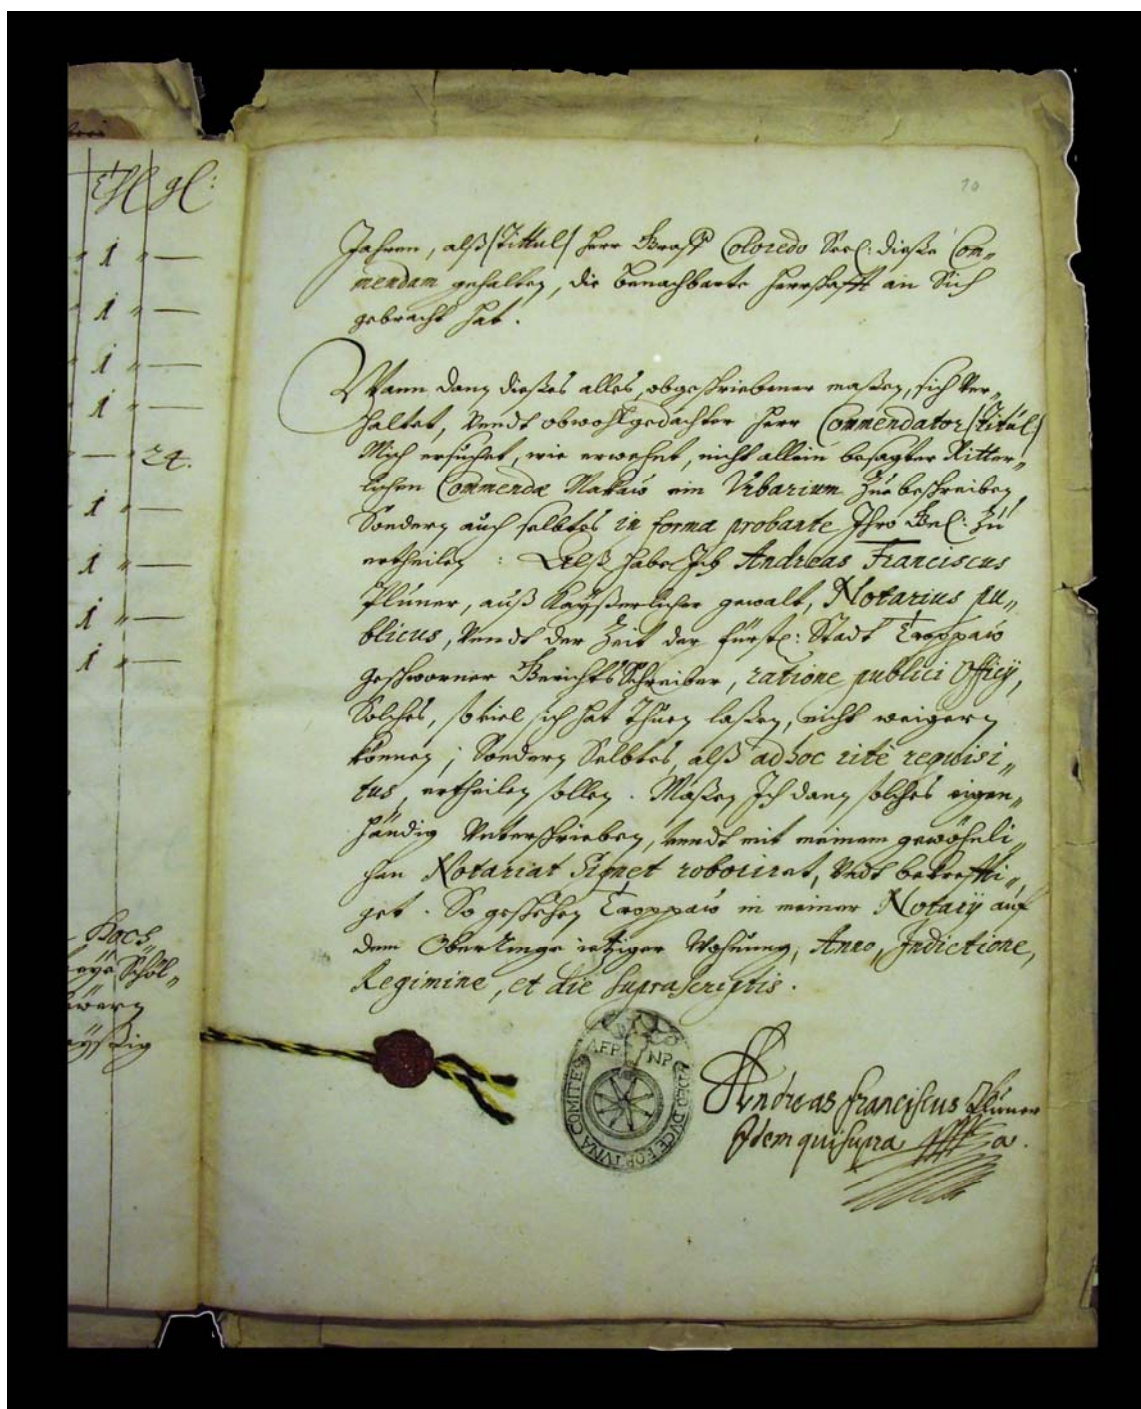 10
Jahren, alß (Titul) Herr Graff Coloredo Seel: dieße Com„
mendam gehalten, die benachbarte Herrschafft an Sich
gebracht hat.
Wann dann dießes alles, obgeschriebener maßen, sich Ver„
haltet, Vndt obwohlgedachter Herr Commendator (Titul)
Mich ersuchet, wie erwehnt, nicht allein besagter Ritter„
lichen Commendæ Makaw ein Vrbarium Zue beschreiben,
Sondern auch selbtes in forma probante Ihro Gel: Zu
ertheilen: Alß habe Ich Andreas Franciscus
Plüner, auß Kayßerlicher gewalt, Notarius pu„
blicus, Vndt der Zeit der Fürstl: Stadt Troppaw
geschworner Gerichts Schreiber, ratione publici Officij,
Solches, so viel sich hat Thuen laßen, nicht weigern
können; Sondern Selbtes, alß ad hoc rité requisi„
tus, ertheilen sollen. Maßen Ich dann solches eigen„
händig Vnterschrieben, Vndt mit meinem gewöhnli„
chen Notariat Signet roborirat, Vndt bekreffti„
get. So geschehen Troppaw in meiner Notarij auf
dem Oberringe ietziger Wohnung, Anno, Indictione,
Regimine, et die suprascriptis.
AFP NP
DEO DVCE FORTVNA COMITE
Andreas Franciscus Plüner
Idem qui supra
Thl gl:
1 " —
1 " —
1 " —
1 " —
— " 24.
1 " —
1 " —
1 " —
1 " —